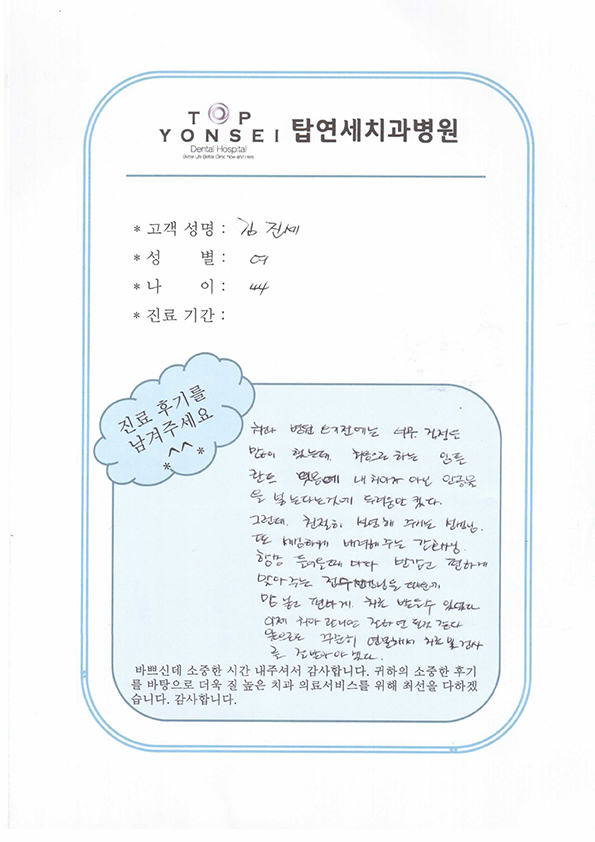 TOP
YONSEI 탑연세치과병원
Dental Hospital
Better Life Better Clinic Now and Here
* 고객 성명 : 김 진세
* 성 별 : 여
* 나 이 : 44
* 진료 기간 :
진료 후기를
남겨주세요
*^^*
치과 병원 오기전에는 너무 걱정도
많이 했는데. 처음으로 하는 임플
란트 내 치아가 아닌 인공물
을 넣는다는것에 두려움만 컸다.
그런데. 친절히 설명해 주시는 선생님.
또 세심하게 배려해 주는 간호사님.
항상 들어올때 마다 반갑고 편하게
맞아주는 때문에
맘 놓고 편하게 치료 받을수 있었다
이제 치아
앞으로도 꾸준히 치료 및 검사
를 잘 받아야 겠다.
바쁘신데 소중한 시간 내주셔서 감사합니다. 귀하의 소중한 후기
를 바탕으로 더욱 질 높은 치과 의료서비스를 위해 최선을 다하겠
습니다. 감사합니다.